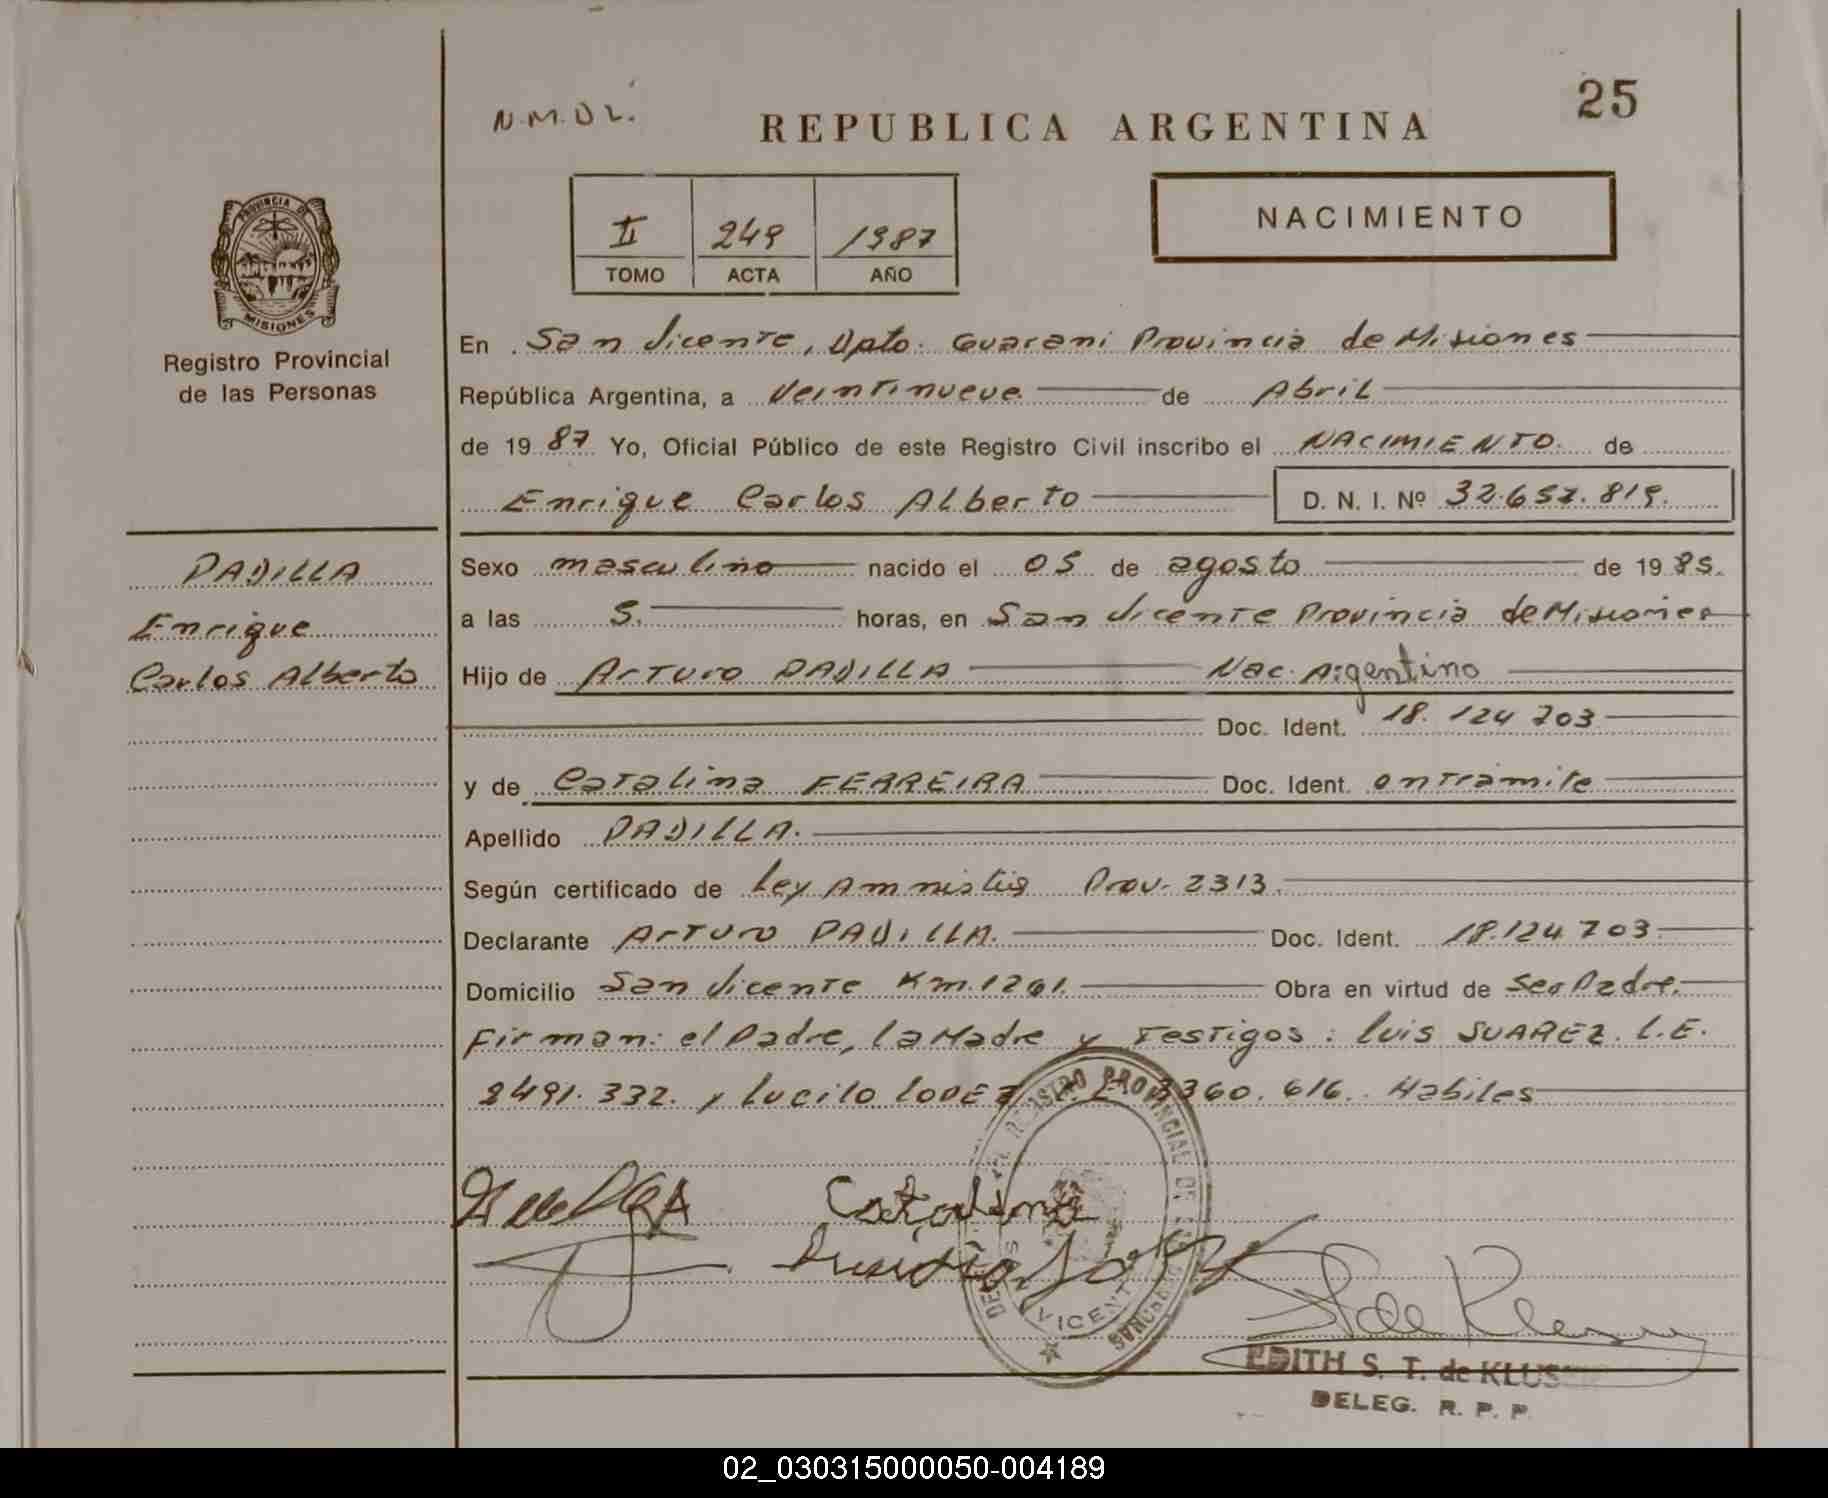 25
N.M.DL.
REPUBLICA ARGENTINA
NACIMIENTO
II 249 1987
TOMO ACTA AÑO
PROVINCIA DE
MISIONES
Registro Provincial
de las Personas
En San Vicente, Dpto. Guarani Provincia de Misiones
República Argentina, a Veintinueve de Abril
de 19 87 Yo, Oficial Público de este Registro Civil inscribo el NACIMIENTO. de
Enrique Carlos Alberto D. N. I. Nº 32.657.819.
PADILLA
Enrique
Carlos Alberto
Sexo masculino nacido el 05 de agosto de 19 85.
a las 5. horas, en San Vicente Provincia de Misiones
Hijo de Arturo PADILLA Nac. Argentino
Doc. Ident. 18.124 703
y de Catalina FERREIRA Doc. Ident. en tramite
Apellido PADILLA.
Según certificado de Ley Amnistia Prov. 2313.
Declarante Arturo PADILLA. Doc. Ident. 18.124 703
Domicilio San Vicente Km. 1261. Obra en virtud de Ser Padre.
Firman: el Padre, la Madre y Testigos: Luis SUAREZ. L.E.
8491.332. y Lucilo LOPEZ L.E. 3360.616. Habiles
REGISTRO PROVINCIAL DE
VICENTE
Catalina
EDITH S. T. de KLUS
DELEG. R. P. P.
02_030315000050-004189